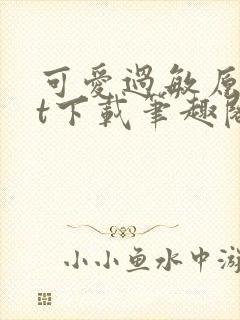 可愛過敏原
t下載筆趣閣
小小鱼水中游